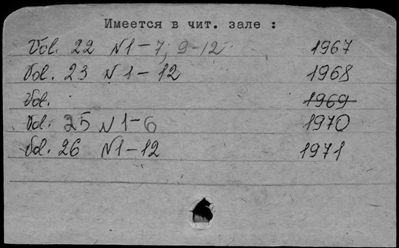 Имеется в чит. зале :
Vol. 22 N1-7, 9-12 1967
Vol. 23 N1-12 1968
Vol. 1969
Vol. 25 N1-6 1970
Vol. 26 N1-12 1971